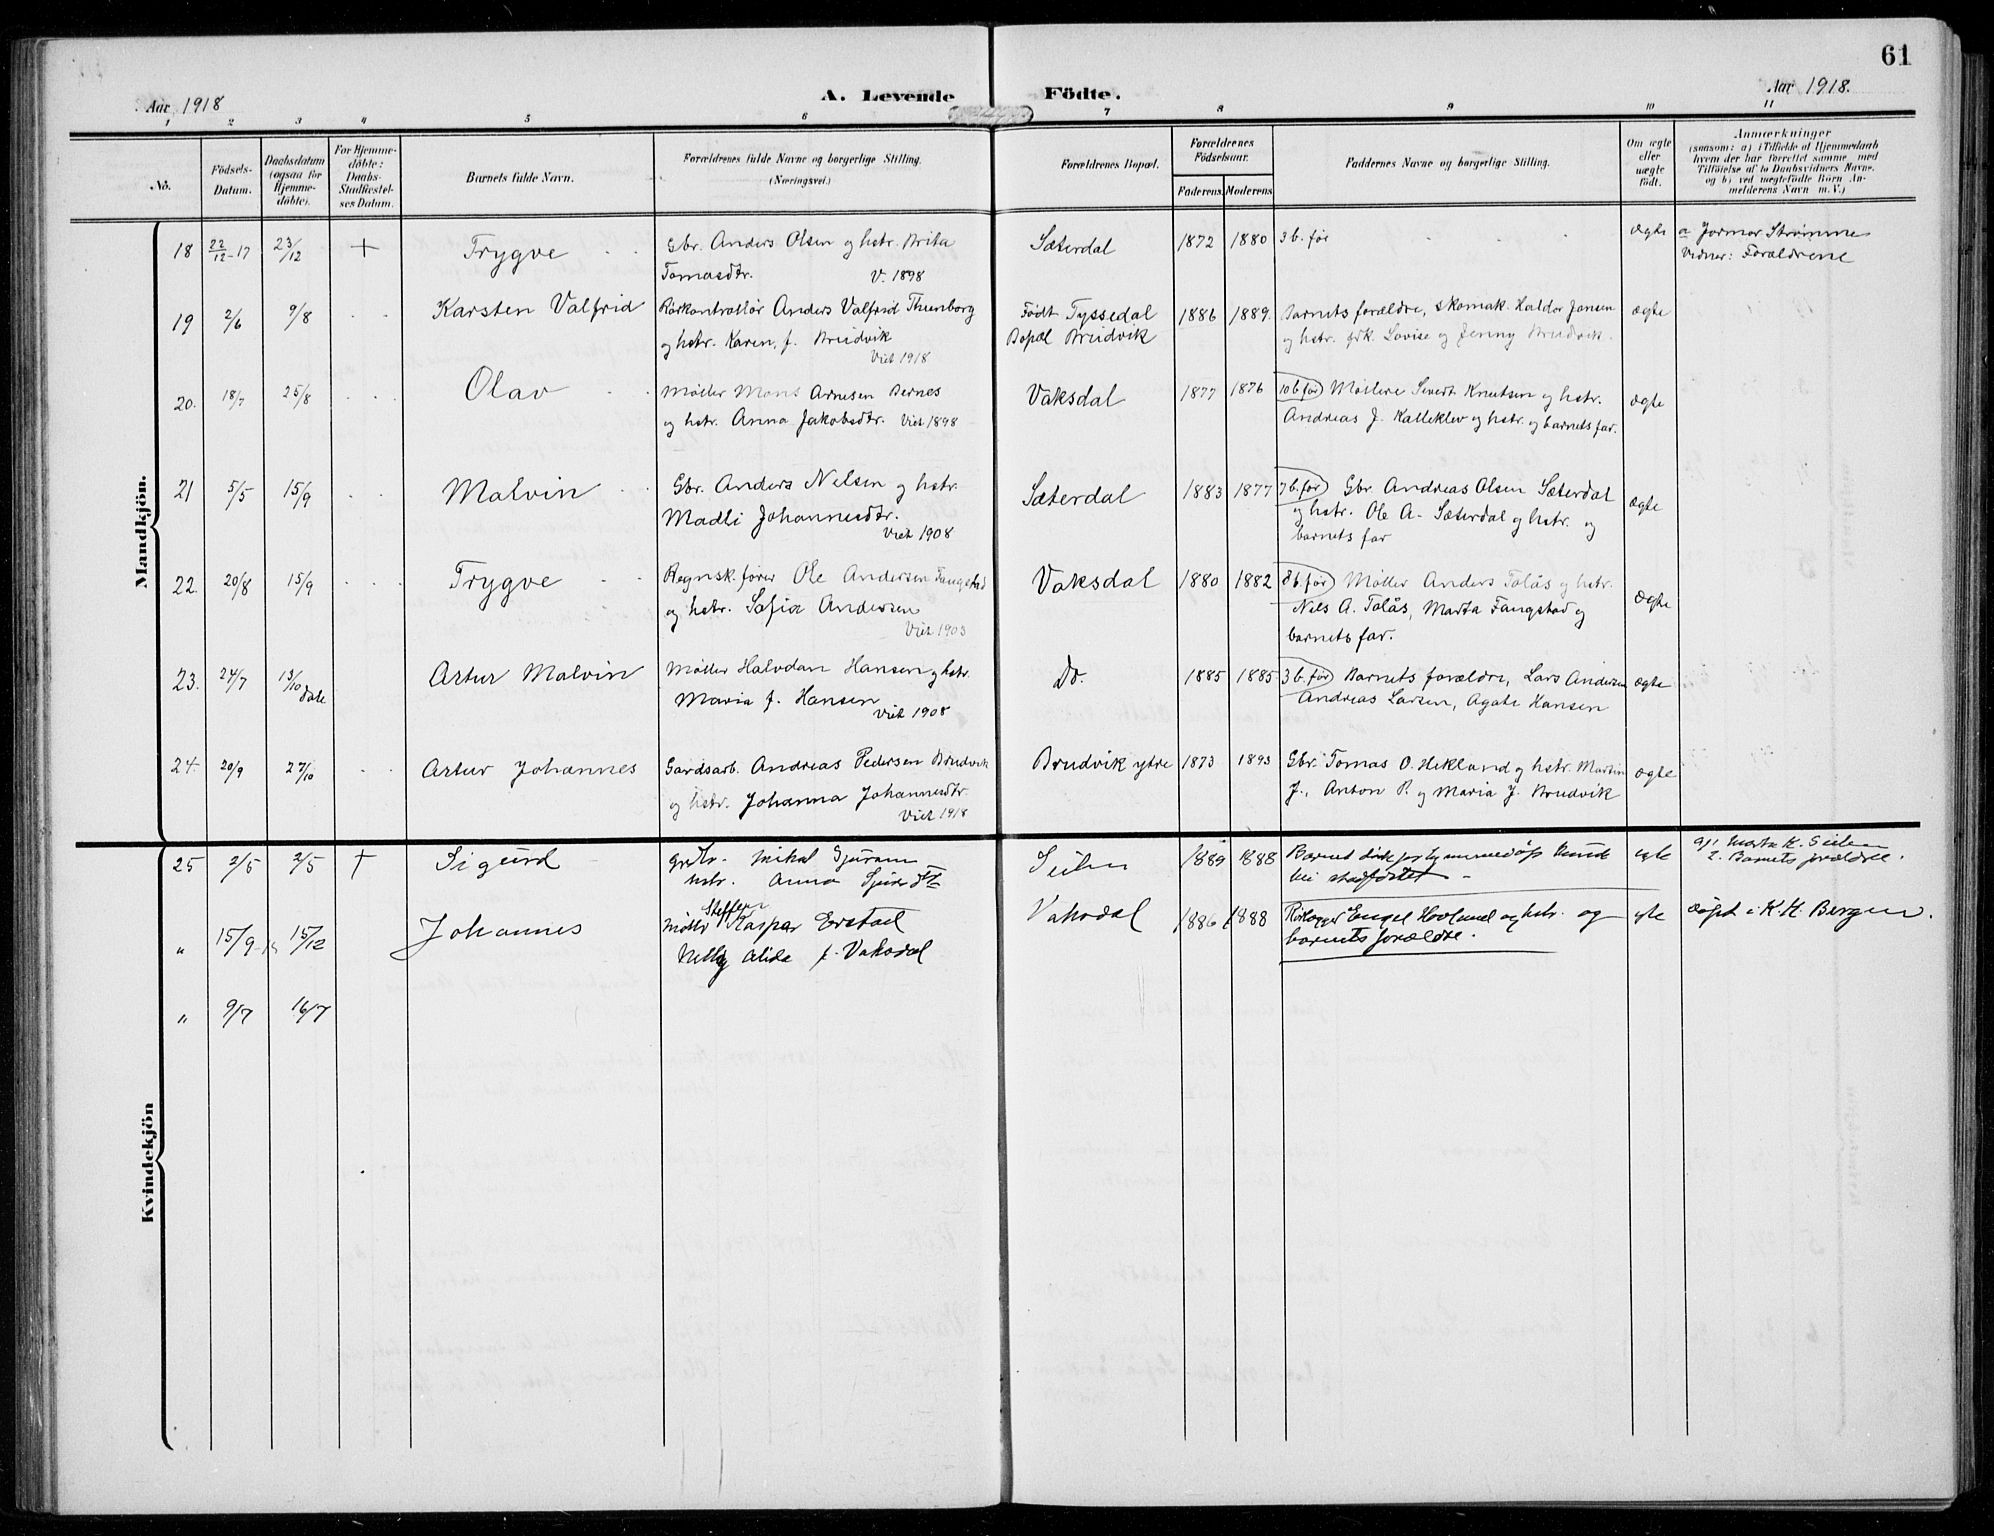 61
Aar 1918 A. Levende Födte. Aar 1918.
1 2 3 4 5 6 7 8 9 10 11
No.
Födsels-Datum.
Daabsdatum (ogsaa for Hjemme-döbte).
For Hjemme-döbte: Daabs-Stadfæstel-ses Datum.
Barnets fulde Navn.
Forældrenes fulde Navne og borgerlige Stilling.
(Næringsvei.)
Forældrenes Bopæl.
Forældrenes Födselsaar.
Faderens. Moderens.
Faddernes Navne og borgerlige Stilling.
Om ægte eller uægte født.
Anmærkninger
(saasom: a) i Tilfælde af Hjemmedaab
hvem der har forrettet samme, med
Tilföielse af to Daabsvidners Navne.
og b) ved uægtefødte Börn An-
melderens Navn m. V.)
Mandkjön.
18 22/12-17 23/12 + Trygve Gbr. Anders Olsen og hstr. Brita Sæterdal 1872 1880 3 b. før ægte a Jormor Strømme
Tomasdtr. V. 1898 Vidner: Forældrene
19 2/6 9/8 Karsten Valfrid Rørkontrollør Anders Valfrid Thunborg Født Tyssedal 1886 1889. Barnets forældre, skomak. Haldor Jansen ægte
og hstr. Karen, f. Bruvik Bopæl Bruvik og hstr. frk. Lovise og Jenny Bruvik.
Viet 1918
20. 18/7 25/8 Olav Møller Mons Arnesen Bernes Vaksdal 1877 1876 10 b. før Møllere Sivert Knutsen og hstr. ægte
og hstr. Anna Jakobsdtr. Viet 1898 Andreas J. Kalleklev og hstr. og barnets far.
21 5/5 15/9 Malvin Gbr. Anders Nilsen og hstr. Sæterdal 1883 1877 7 b. før Gbr. Andreas Olsen Sæterdal ægte
Madli Johannesdtr. og hstr. Ole A. Sæterdal og hstr. og
Viet 1908 barnets far
22. 20/8 15/9 Trygve Regnsk. fører Ole Andersen Fangstad Vaksdal 1880 1882 8 b. før Møller Anders Tolås og hstr. ægte
og hstr. Sofia Andersen Nils A. Tolås, Marta Fangstad og
Viet 1903 barnets far.
23. 24/7 13/10 Dale Artur Malvin Møller Halvdan Hansen og hstr. Do. 1885 1885 3 b. før Barnets forældre, Lars Andersen ægte
Maria f. Hansen Andreas Larsen, Agate Hansen
Viet 1908
24. 20/9 27/10 Artur Johannes Gardsarb. Andreas Pedersen Bruvik Bruvik ytre 1873 1893 Gbr. Tomas O. Hekland og hstr. Martin ægte
og hstr. Johanna Johannesdtr. J., Anton P. og Maria J. Bruvik
Viet 1918
25 2/5 2/5 † Sigurd Mikal Seilen 1889 1888 Barnet døde ægte Marta K. Seilen
hstr. Anna stadfæstet 2. Barnets forældre.
" 15/9 15/12 Johannes Møller Steffen Kaspar Erstad Vaksdal 1886 1888 Rørlegger Engel Hovland og hstr. og ægte døpt i K. K. Bergen.
Nelly Alida f. Vaksdal barnets forældre.
" 9/7 16/7
Kvindekjön